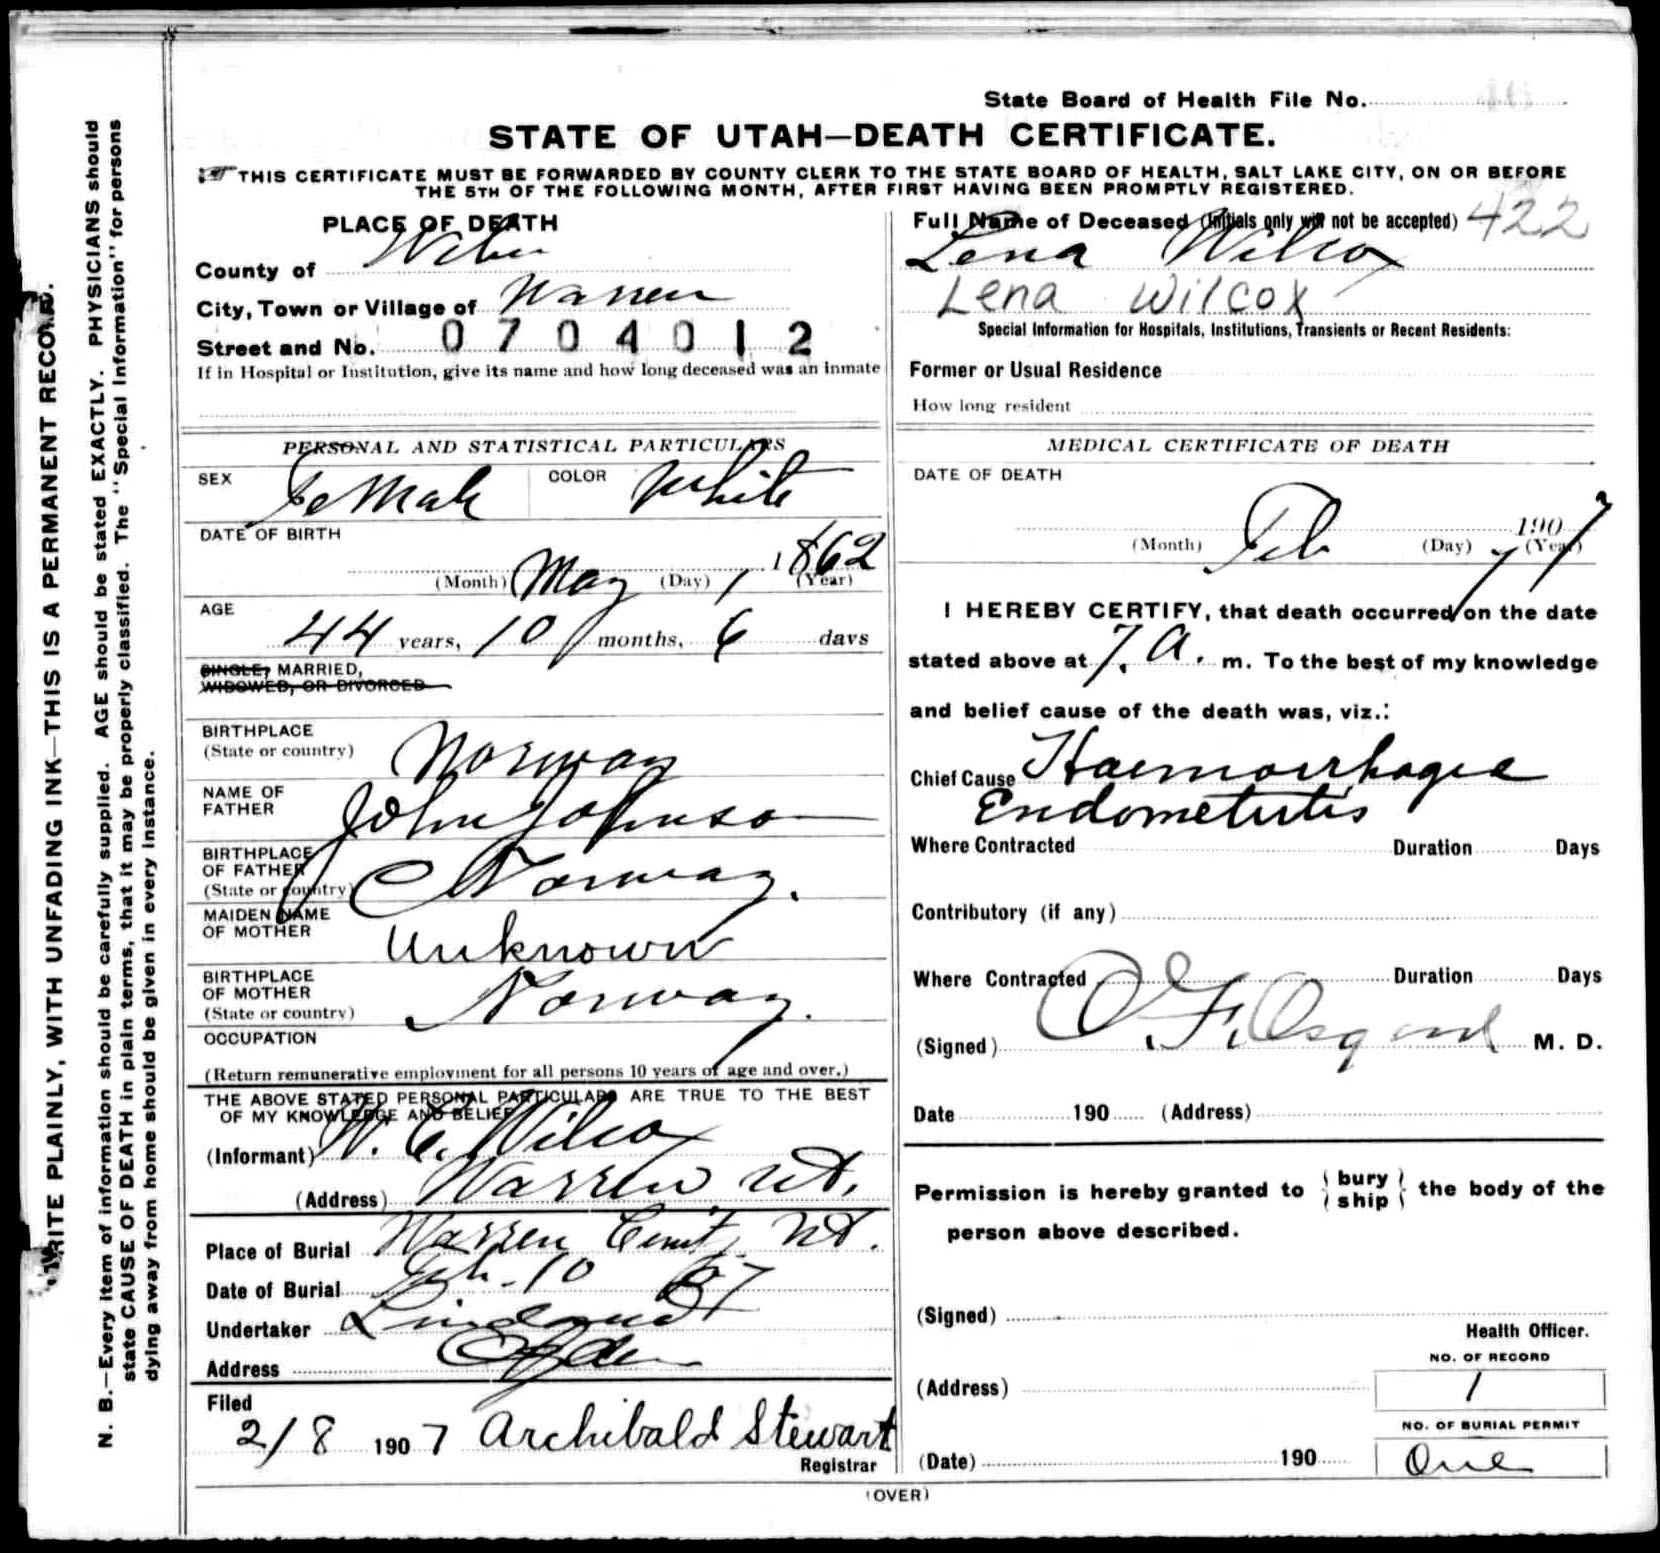 State Board of Health File No. 46
STATE OF UTAH—DEATH CERTIFICATE.
THIS CERTIFICATE MUST BE FORWARDED BY COUNTY CLERK TO THE STATE BOARD OF HEALTH, SALT LAKE CITY, ON OR BEFORE
THE 5TH OF THE FOLLOWING MONTH, AFTER FIRST HAVING BEEN PROMPTLY REGISTERED.
PLACE OF DEATH
County of Weber
City, Town or Village of Warren
Street and No. 0704012
If in Hospital or Institution, give its name and how long deceased was an inmate
Full Name of Deceased (Initials only will not be accepted) 422
Lena Wilcox
Lena Wilcox
Special Information for Hospitals, Institutions, Transients or Recent Residents:
Former or Usual Residence
How long resident
PERSONAL AND STATISTICAL PARTICULARS
SEX Female COLOR White
DATE OF BIRTH
(Month) May (Day) 1 1862 (Year)
AGE
44 years, 10 months, 6 days
SINGLE, MARRIED,
WIDOWED, OR DIVORCED
BIRTHPLACE
(State or country) Norway
NAME OF
FATHER John Johnson
BIRTHPLACE
OF FATHER
(State or country) Norway.
MAIDEN NAME
OF MOTHER Unknown
BIRTHPLACE
OF MOTHER
(State or country) Norway.
OCCUPATION
(Return remunerative employment for all persons 10 years of age and over.)
THE ABOVE STATED PERSONAL PARTICULARS ARE TRUE TO THE BEST
OF MY KNOWLEDGE AND BELIEF
(Informant) W. C. Wilcox
(Address) Warren Ut.
Place of Burial Warren Cemt. Ut.
Date of Burial Feb. 10 07
Undertaker Lindquist
Address Ogden
Filed
2/8 1907 Archibald Stewart
Registrar
MEDICAL CERTIFICATE OF DEATH
DATE OF DEATH
(Month) Feb (Day) 7 1907 (Year)
I HEREBY CERTIFY, that death occurred on the date
stated above at 7. a. m. To the best of my knowledge
and belief cause of the death was, viz.:
Chief Cause Haemorrhagic
Endometritis
Where Contracted Duration Days
Contributory (if any)
Where Contracted Duration Days
(Signed) O. F. Osgood M. D.
Date 190 (Address)
Permission is hereby granted to { bury ship } the body of the
person above described.
(Signed)
Health Officer.
NO. OF RECORD
(Address) 1
NO. OF BURIAL PERMIT
(Date) 190 One
(OVER)
WRITE PLAINLY, WITH UNFADING INK—THIS IS A PERMANENT RECORD.
N. B.—Every item of information should be carefully supplied. AGE should be stated EXACTLY. PHYSICIANS should
state CAUSE OF DEATH in plain terms, that it may be properly classified. The "Special Information" for persons
dying away from home should be given in every instance.